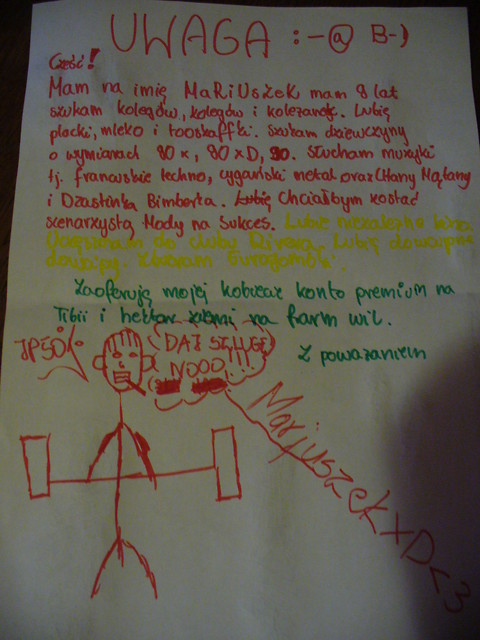 UWAGA :-@ B-)
Cześć!
Mam na imię MaRiUSzeK mam 8 lat
szukam kolegów, kolegów i koleżanek. Lubię
placki, mleko i tooskaffki. Szukam dziewczyny
o wymiarach 90x, 90xD, 90. Słucham muzyki
tj. francuskie techno, cygański metal oraz CHany Mątany
i Dżastinka Bimberta. Lubię Chciałbym zostać
scenarzystą Mody na Sukces. Lubię niezależne
do clubu Lubię dowcipne
dowcipy. Zbieram
Zaoferuję mojej kobiecie konto premium na
Tibii i hektar ziemi na farm wil.
Z poważaniem
JP50%
DAJ SZLUGE
NOOO !!!
MarjuszekxD<3